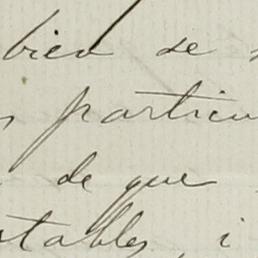 bien se
particu
de que
stables, i